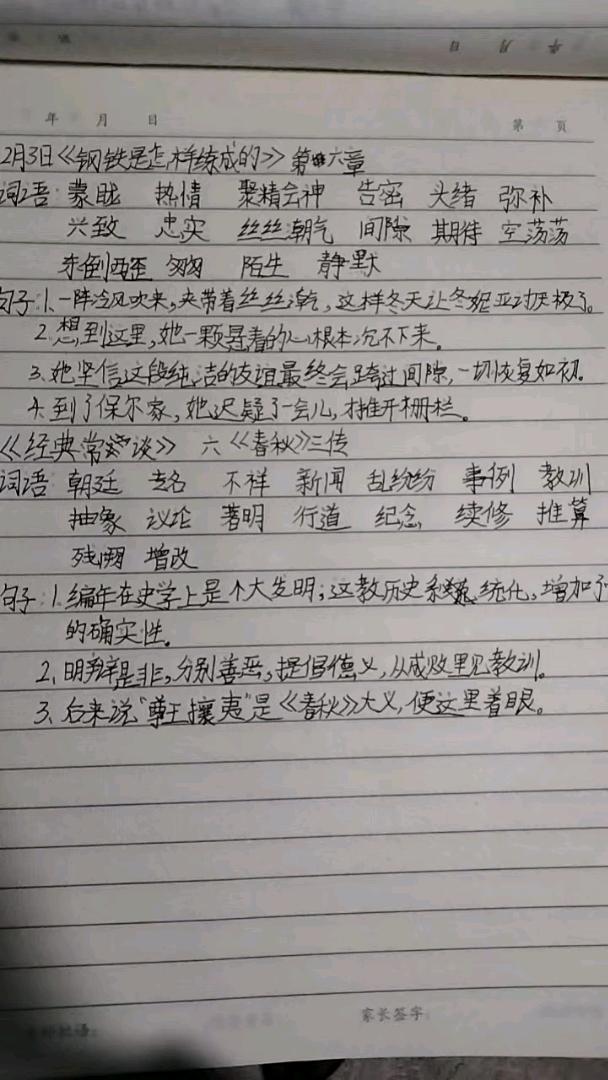 年 月 日
年 月 日 第 页
2月3日《钢铁是怎样练成的》第六章
词语:蒙眬 热情 聚精会神 告密 头绪 弥补
兴致 忠实 丝丝潮气 间隙 期待 空荡荡
东倒西歪 匆匆 陌生 静默
句子:1.一阵冷风吹来,夹带着丝丝潮气,这样冬天让冬妮亚讨厌极了。
2.想到这里,她一颗悬着的心根本沉不下来。
3.她坚信这段纯洁的友谊最终会跨过间隙,一切恢复如初。
4.到了保尔家,她迟疑了一会儿,才推开栅栏。
《经典常谈》 六《春秋》三传
词语:朝廷 专名 不祥 新闻 乱纷纷 事例 教训
抽象 议论 著明 行道 纪念 续修 推算
残阙 增改
句子:1.编年在史学上是个大发明;这教历史系统化,增加了
的确实性。
2.明辩是非,分别善恶,提倡德义,从成败里见教训。
3.后来说“尊王攘夷”是《春秋》大义,便这里着眼。
家长签字: